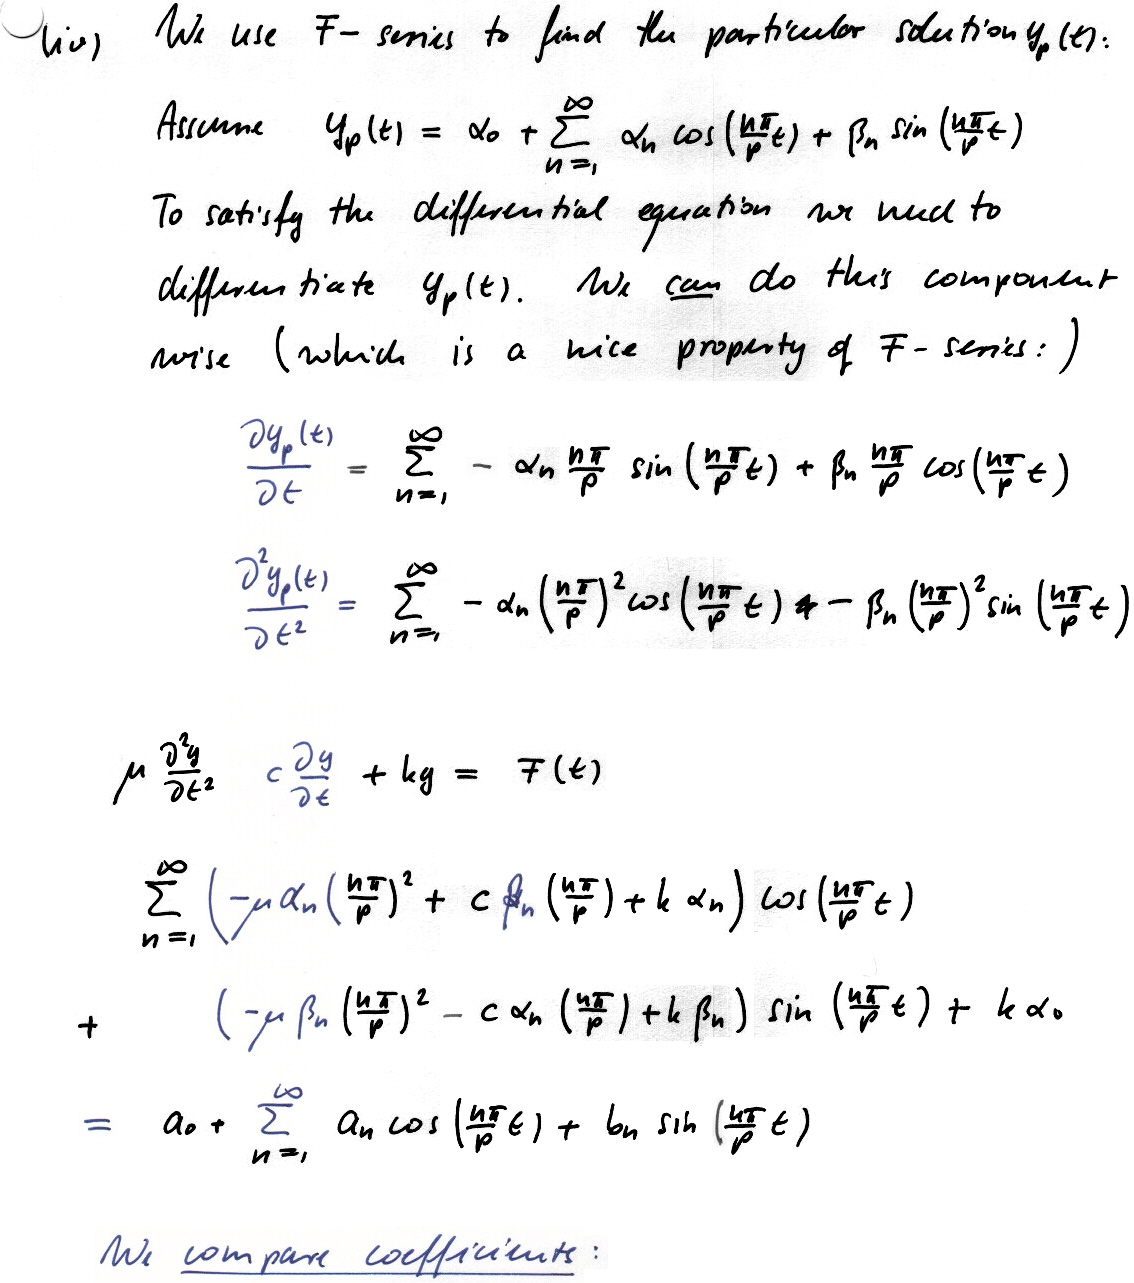 (iv) We use F-series to find the particular solution y_p(t):
Assume y_p(t) = α₀ + ∑_{n=1}^{∞} α_n cos(nπ/p t) + β_n sin(nπ/p t)
To satisfy the differential equation we need to
differentiate y_p(t). We can do this component
wise (which is a nice property of F-series:)
∂y_p(t)/∂t = ∑_{n=1}^{∞} - α_n nπ/p sin(nπ/p t) + β_n nπ/p cos(nπ/p t)
∂²y_p(t)/∂t² = ∑_{n=1}^{∞} - α_n (nπ/p)² cos(nπ/p t) - β_n (nπ/p)² sin(nπ/p t)
μ ∂²y/∂t² c ∂y/∂t + ky = F(t)
∑_{n=1}^{∞} (-μ α_n (nπ/p)² + c β_n (nπ/p) + k α_n) cos(nπ/p t)
+ (-μ β_n (nπ/p)² - c α_n (nπ/p) + k β_n) sin(nπ/p t) + k α₀
= a₀ + ∑_{n=1}^{∞} a_n cos(nπ/p t) + b_n sin(nπ/p t)
We compare coefficients: